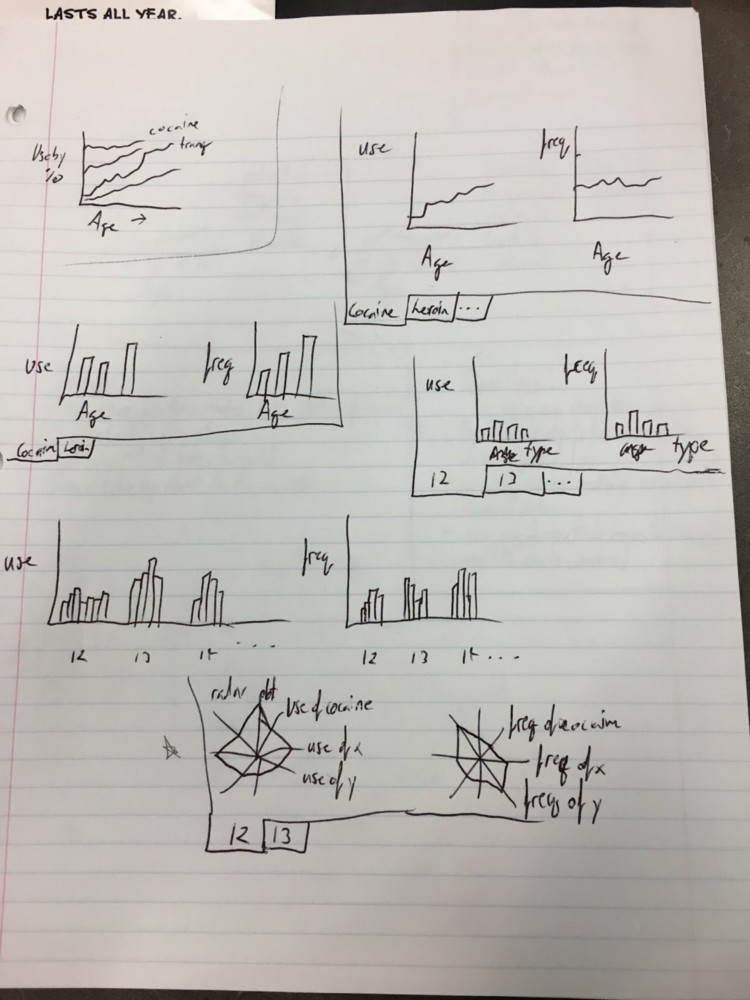 LASTS ALL YEAR.
Use by
%
cocaine
tranq
Age →
use
Age
freq
Age
Cocaine
heroin
...
use
Age
freq
Age
Cocain
heroin
use
type
freq
type
12
13
...
use
12
13
14
...
freq
12
13
14
...
radar plot
use of cocaine
use of x
use of y
freq of cocaine
freq of x
freq of y
12
13